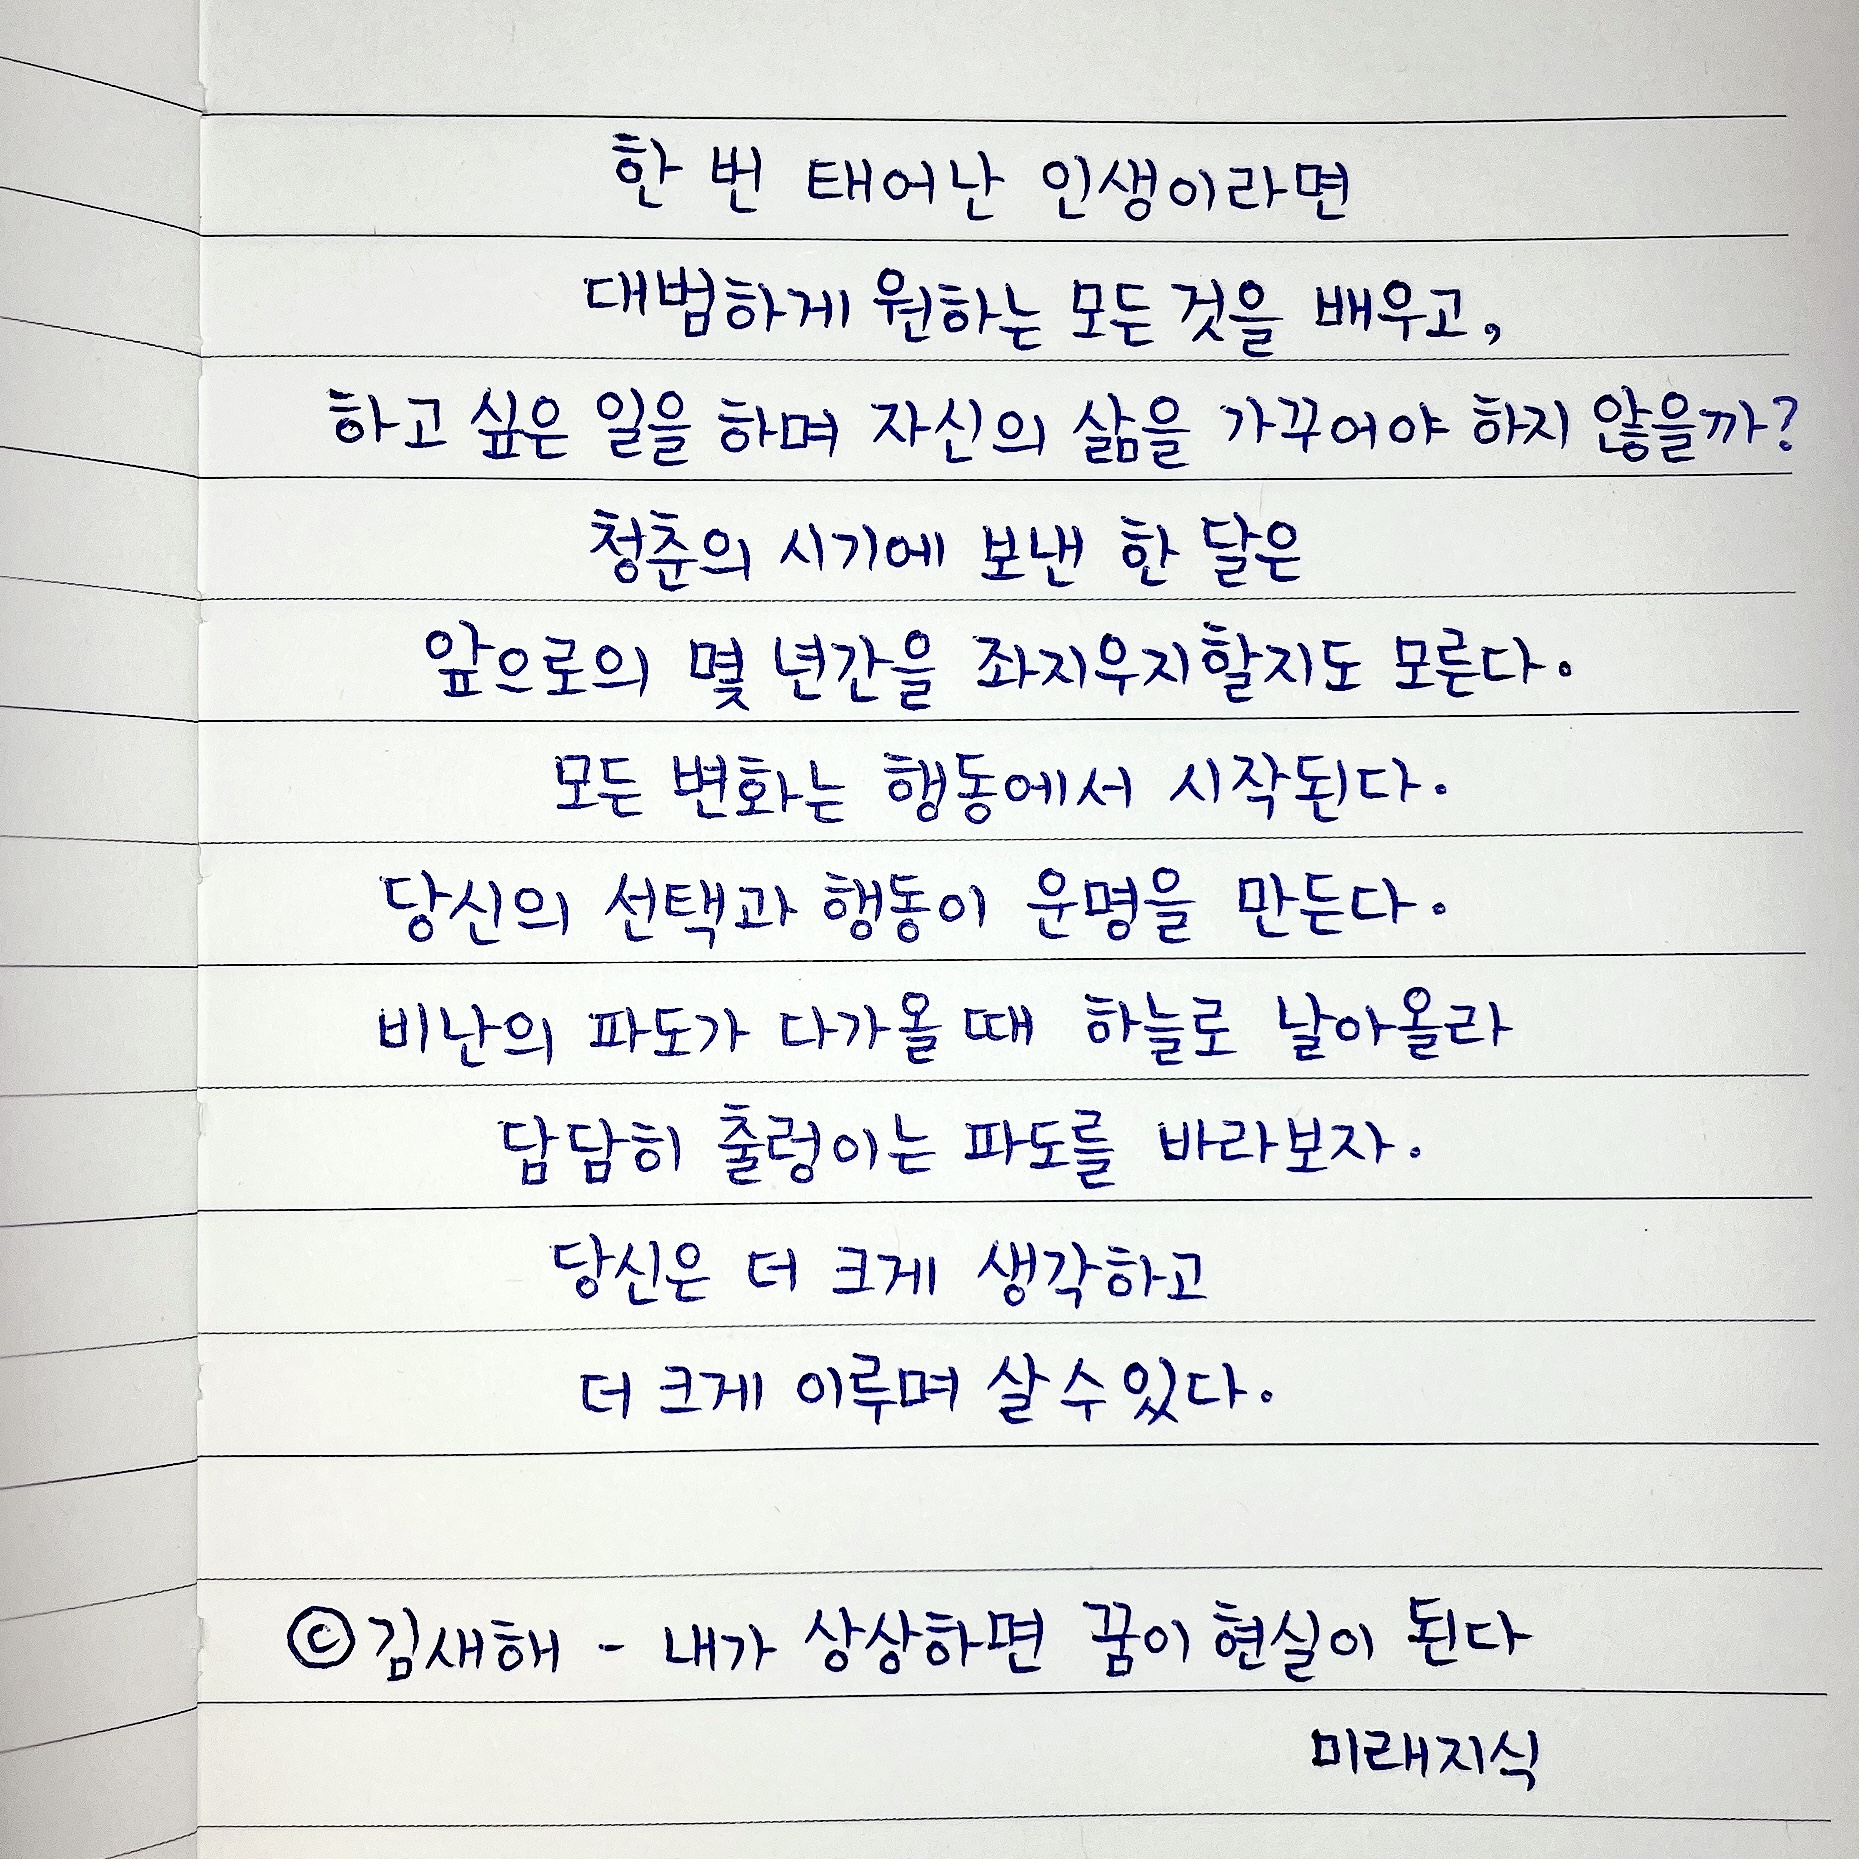 한 번 태어난 인생이라면
대범하게 원하는 모든 것을 배우고,
하고 싶은 일을 하며 자신의 삶을 가꾸어야 하지 않을까?
청춘의 시기에 보낸 한 달은
앞으로의 몇 년간을 좌지우지할지도 모른다.
모든 변화는 행동에서 시작된다.
당신의 선택과 행동이 운명을 만든다.
비난의 파도가 다가올 때 하늘로 날아올라
담담히 출렁이는 파도를 바라보자.
당신은 더 크게 생각하고
더 크게 이루며 살 수 있다.
©김새해 - 내가 상상하면 꿈이 현실이 된다
미래지식